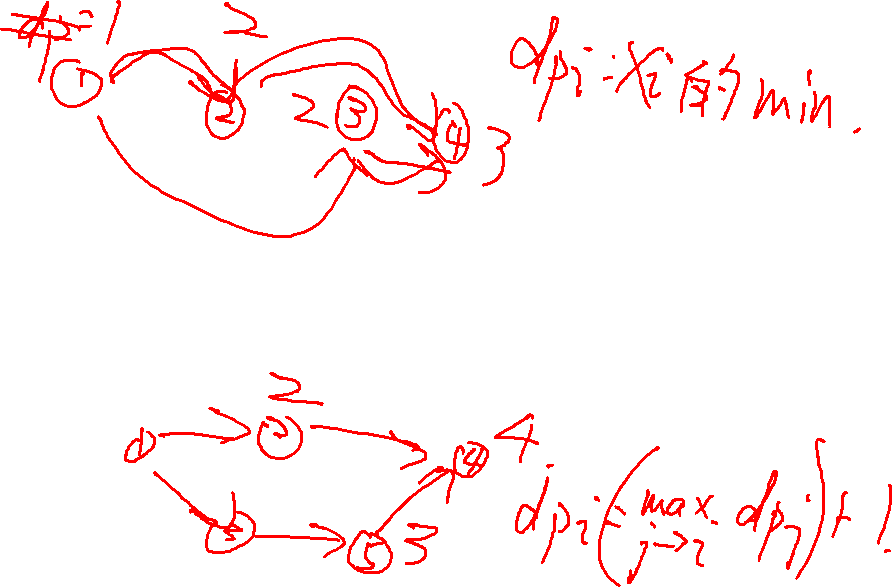 1
2
① ② 2 ③ ④ 3
dp_i : x_i 的 min.
2
① ② ④ 4
③ ⑤ 3
dp_i = (max_{j→i} dp_j) + 1